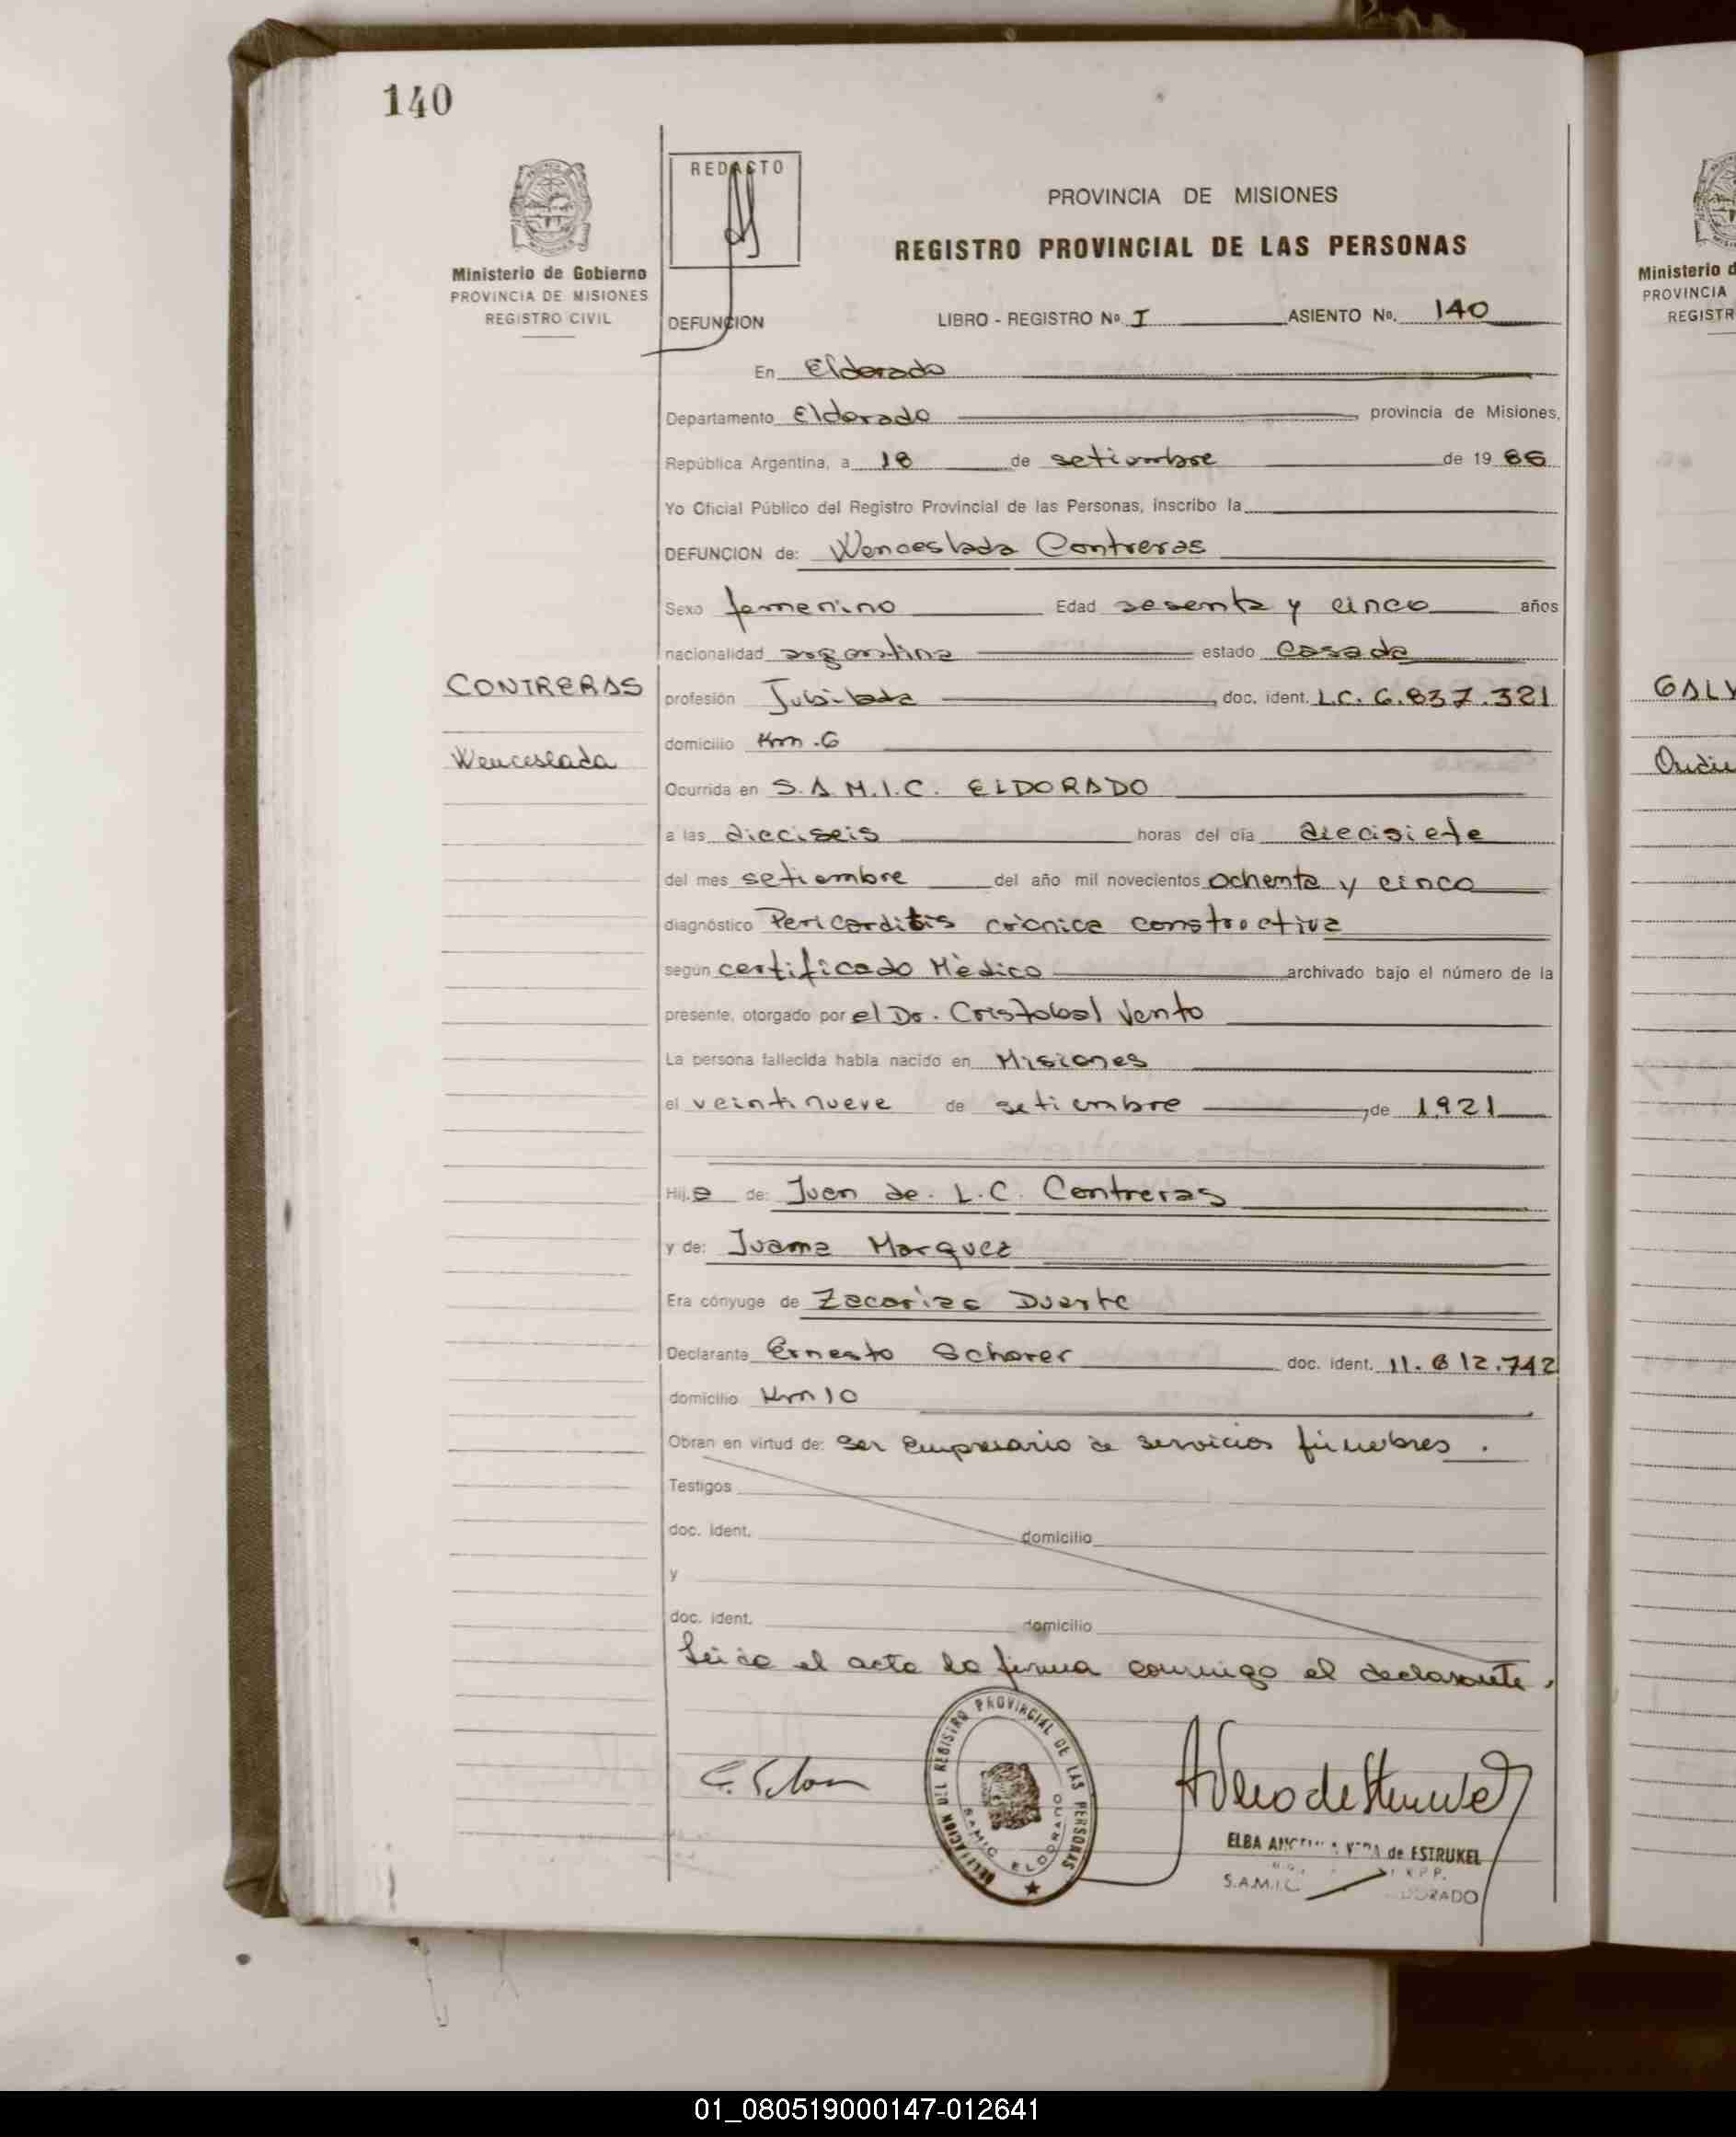 140
REDACTO
PROVINCIA DE MISIONES
REGISTRO PROVINCIAL DE LAS PERSONAS
Ministerio de Gobierno
PROVINCIA DE MISIONES
REGISTRO CIVIL
DEFUNCION LIBRO - REGISTRO Nº I ASIENTO Nº. 140
En Eldorado
Departamento Eldorado, provincia de Misiones,
República Argentina, a 18 de setiembre de 19 86
Yo Oficial Público del Registro Provincial de las Personas, inscribo la
DEFUNCION de: Wenceslada Contreras
Sexo femenino Edad sesenta y cinco años
nacionalidad argentina estado Casada
CONTRERAS
Wenceslada
profesión Jubilada, doc. ident. L.C. 6.837.321
domicilio Km. 6
Ocurrida en S.A.M.I.C. ELDORADO
a las dieciseis horas del día diecisiete
del mes setiembre del año mil novecientos ochenta y cinco
diagnóstico Pericarditis crònica constroctiva
según certificado Mèdico archivado bajo el número de la
presente, otorgado por el Dr. Cristobal Vento
La persona fallecida había nacido en Misiones
el veintinueve de setiembre, de 1921
Hij.a de: Juan de. L.C. Contreras
y de: Juana Marquez
Era cónyuge de Zacarias Duarte
Declarante Ernesto Schorer doc. ident. 11.612.742
domicilio Km 10
Obran en virtud de: ser empresario de servicios fúnebres.
Testigos
doc. ident. domicilio
y
doc. ident. domicilio
Leida el acta la firma conmigo el declarante.
DELEGACION DEL REGISTRO PROVINCIAL DE LAS PERSONAS
SAMIC ELDORADO
ELBA de ESTRUKEL
S.A.M.I.C
GALV
Ministerio d
PROVINCIA
REGISTR
01_080519000147-012641